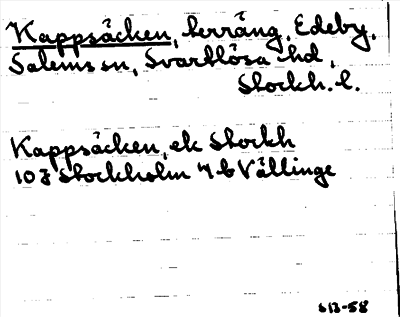 Kappsäcken, terräng, Edeby,
Salems sn, Svartlösa hd,
Stockh. l.
Kappsäcken, ek Stockh
10 J Stockholm 4 b Vällinge
613-58